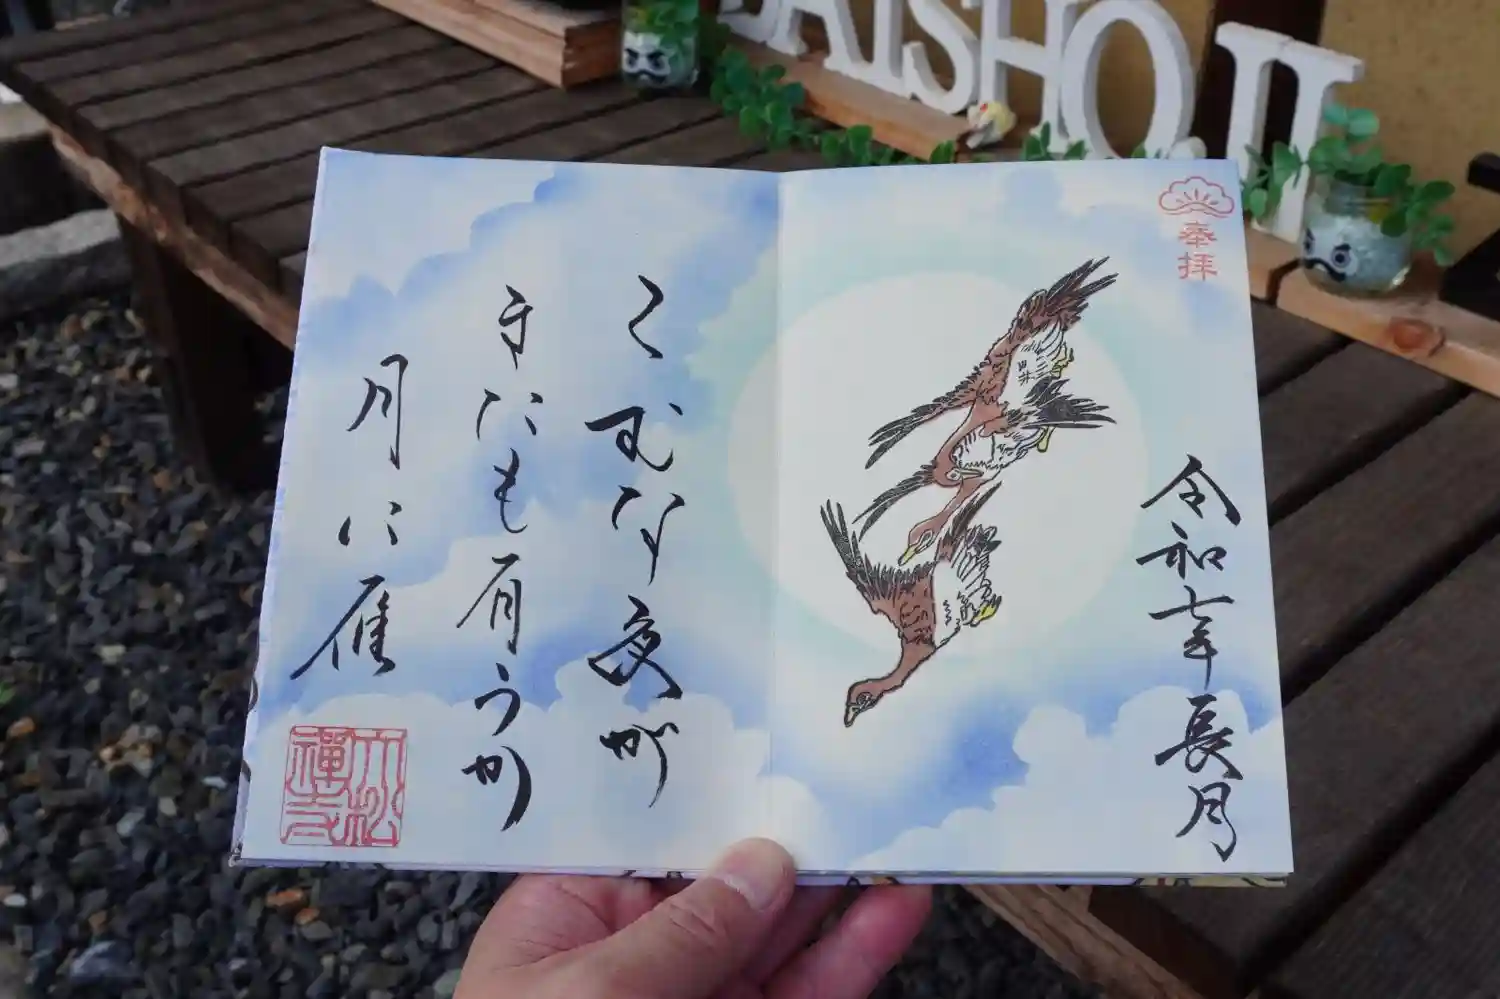 DAISHOJI
奉拝
令和七年長月
こむな夜が
またも有うか
月に雁
大松
禪寺